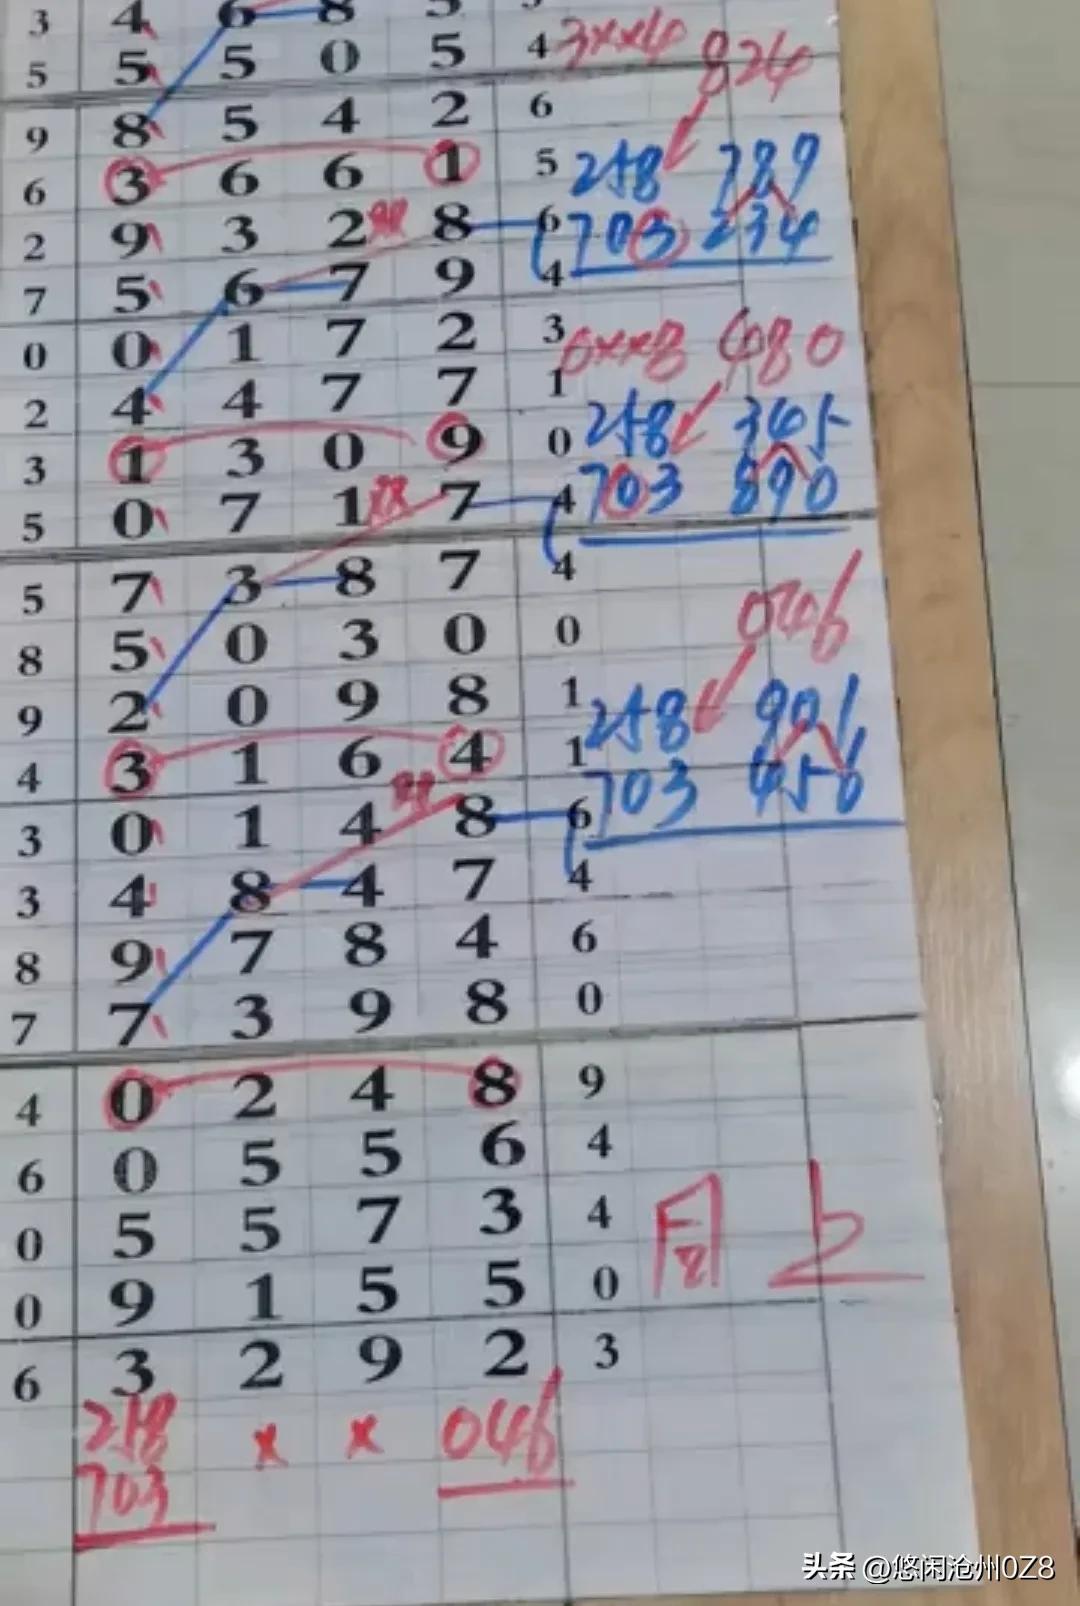 3 4 6 8 5
5 5 5 0 5 4 3××4 824
9 8 5 4 2 6
6 3 6 6 1 5 258 789
2 9 3 2 8 6 703 234
7 5 6 7 9 4
0 0 1 7 2 3 0××8 480
2 4 4 7 7 1 258 345
3 1 3 0 9 0 703 890
5 0 7 1 7 4
5 7 3 8 7 4
8 5 0 3 0 0 046
9 2 0 9 8 1 258 901
4 3 1 6 4 1 703 456
3 0 1 4 8 6
3 4 8 4 7 4
8 9 7 8 4 6
7 7 3 9 8 0
4 0 2 4 8 9
6 0 5 5 6 4
0 5 5 7 3 4
0 9 1 5 5 0
6 3 2 9 2 3
258 × × 046
703
头条 @悠闲沧州0Z8